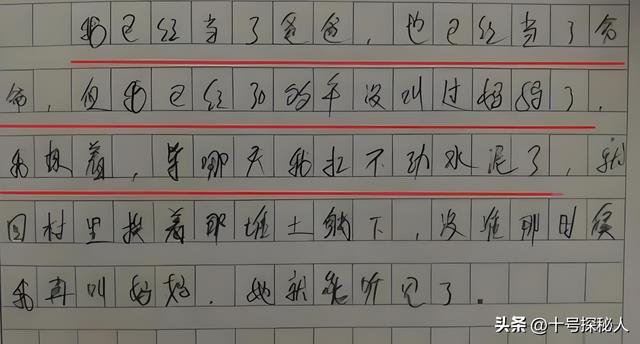 我已经当了爸爸，也已经当了爷
爷，但我已经30的年没叫过妈妈了，
我想着，等哪天我扛不动水泥了，就
回村里挨着那堆土躺下，没准那时候
我再叫妈妈，她就能听见了。
头条 @十号探秘人